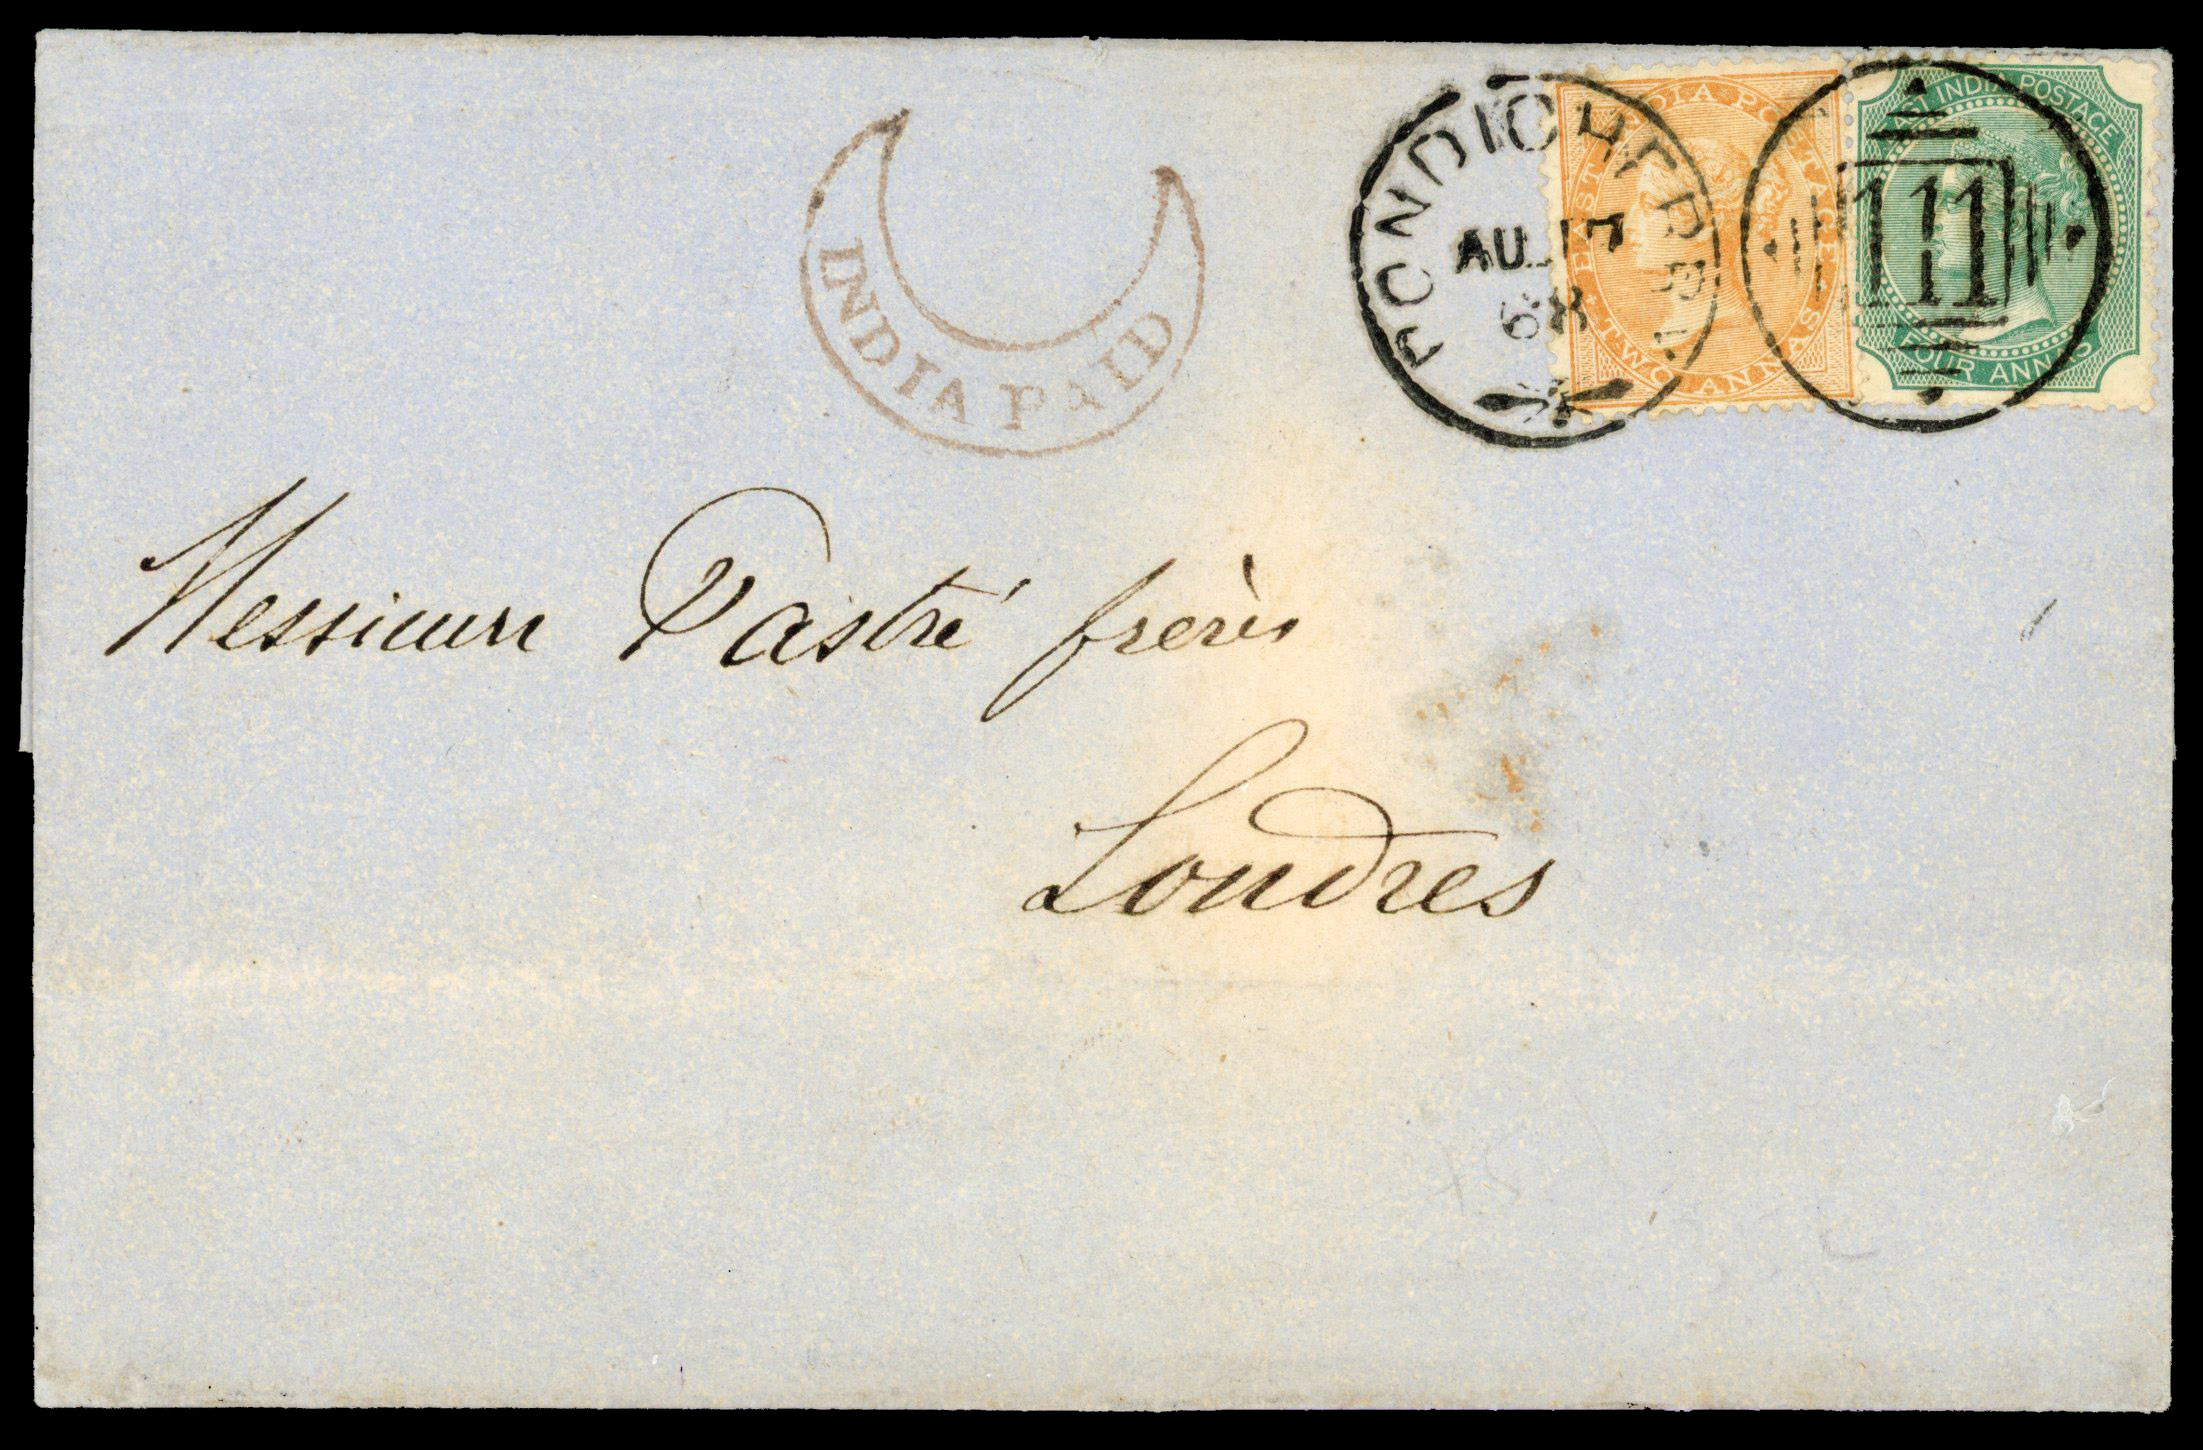 INDIA PAID
PONDICHERRY
AU 17
68
EAST INDIA POSTAGE
TWO ANNAS
111
EAST INDIA POSTAGE
FOUR ANNAS
Messieurs Pastré frerès
Londres